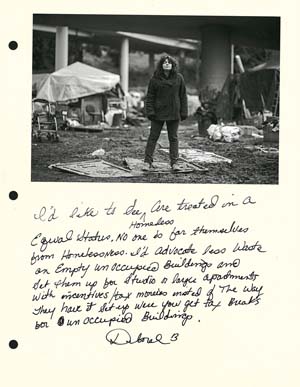 I'd like to see, are treated in a
Homeless
Equal States, No one is for themselves
from Homelessness. I'd Advocate less Waste
on Empty unoccupied Buildings and
Set them up for Studio n large apartments
With incentives tax moneies insted of The Way
They have it set up were you get tax Breaks
for unoccupied Buildings.
Deborah B